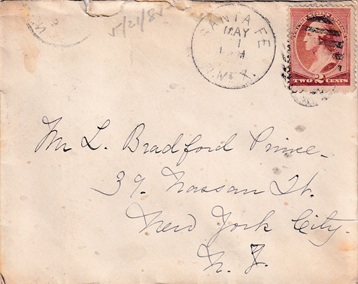 5/21/85
SANTA FE
MAY
1
N. MEX.
TWO 2 CENTS
Mr L. Bradford Prince.
39 Nassau St.
New York City.
N. Y.